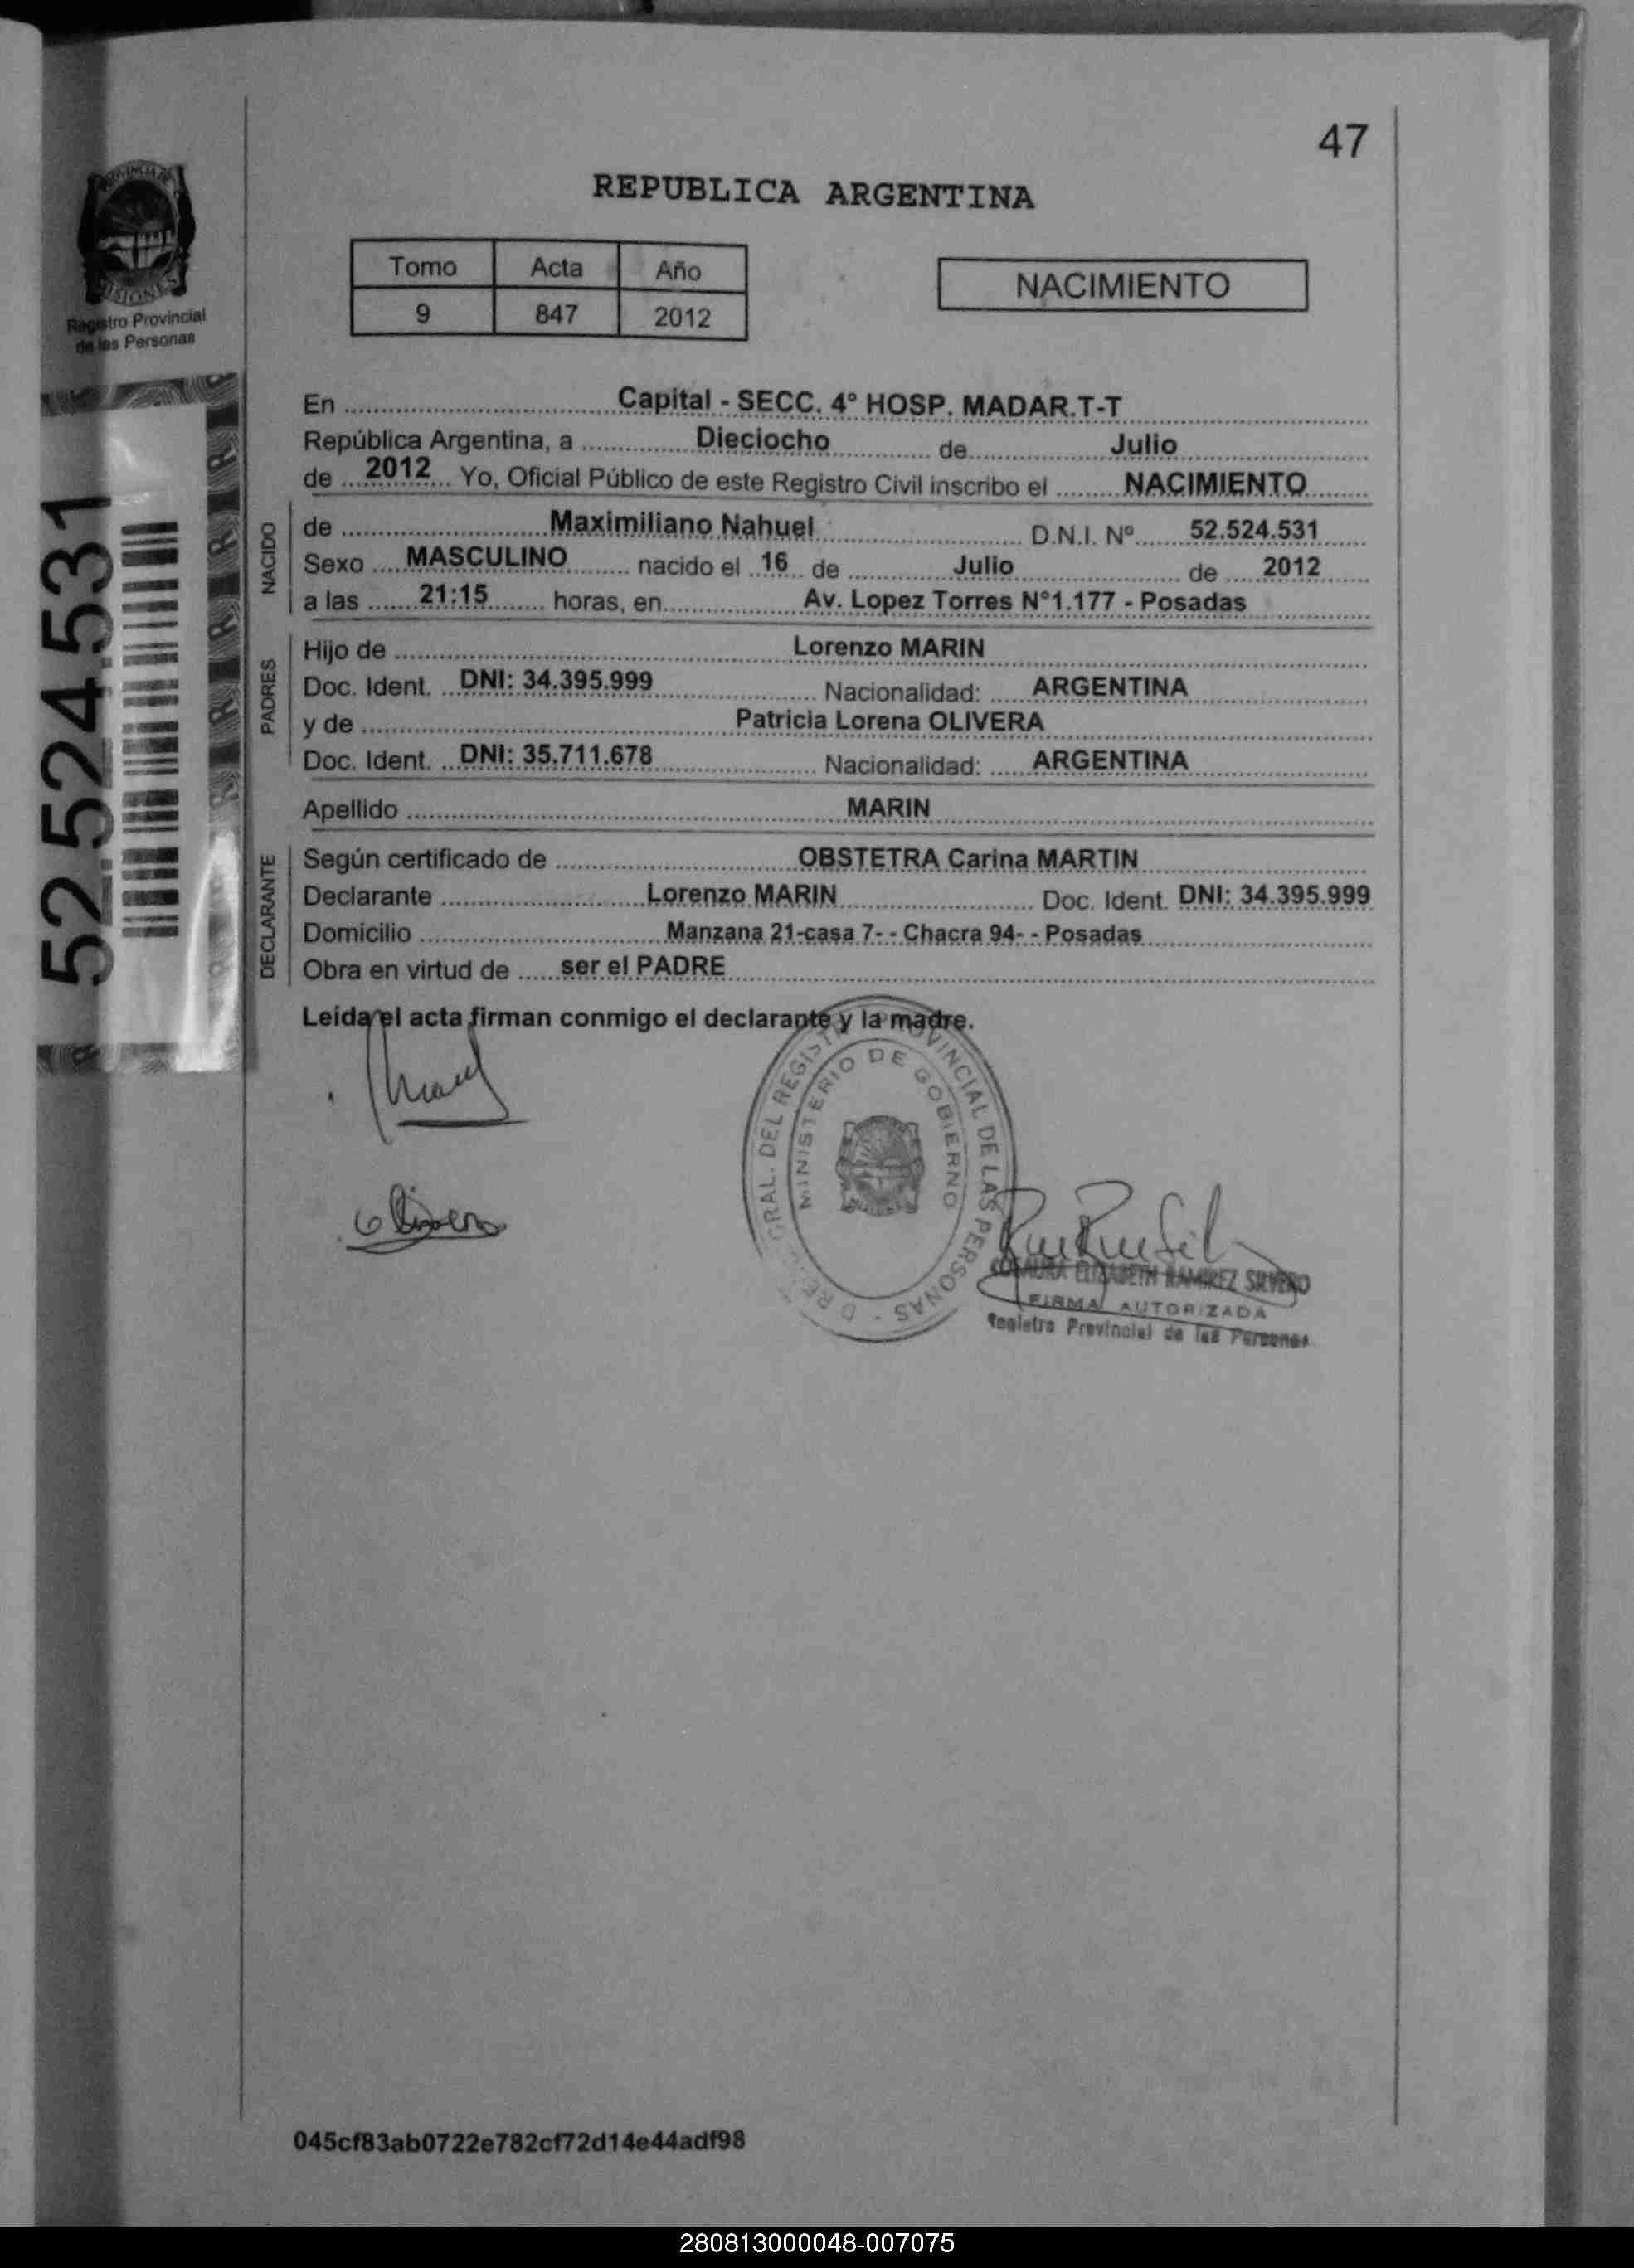 47
PROVINCIA DE
MISIONES
Registro Provincial
de las Personas
REPUBLICA ARGENTINA
Tomo Acta Año
9 847 2012
NACIMIENTO
52.524.531
En Capital - SECC. 4° HOSP. MADAR.T-T
República Argentina, a Dieciocho de Julio
de 2012 Yo, Oficial Público de este Registro Civil inscribo el NACIMIENTO
NACIDO
de Maximiliano Nahuel D.N.I. Nº 52.524.531
Sexo MASCULINO nacido el 16 de Julio de 2012
a las 21:15 horas, en Av. Lopez Torres N°1.177 - Posadas
PADRES
Hijo de Lorenzo MARIN
Doc. Ident. DNI: 34.395.999 Nacionalidad: ARGENTINA
y de Patricia Lorena OLIVERA
Doc. Ident. DNI: 35.711.678 Nacionalidad: ARGENTINA
Apellido MARIN
DECLARANTE
Según certificado de OBSTETRA Carina MARTIN
Declarante Lorenzo MARIN Doc. Ident. DNI: 34.395.999
Domicilio Manzana 21-casa 7- - Chacra 94- - Posadas
Obra en virtud de ser el PADRE
Leida el acta firman conmigo el declarante y la madre.
GRAL. DEL REGISTRO PROVINCIAL DE LAS PERSONAS
MINISTERIO DE GOBIERNO
Olivera
ROSAURA ELIZABETH RAMIREZ SILVERO
FIRMA AUTORIZADA
Registro Provincial de las Personas
045cf83ab0722e782cf72d14e44adf98
280813000048-007075